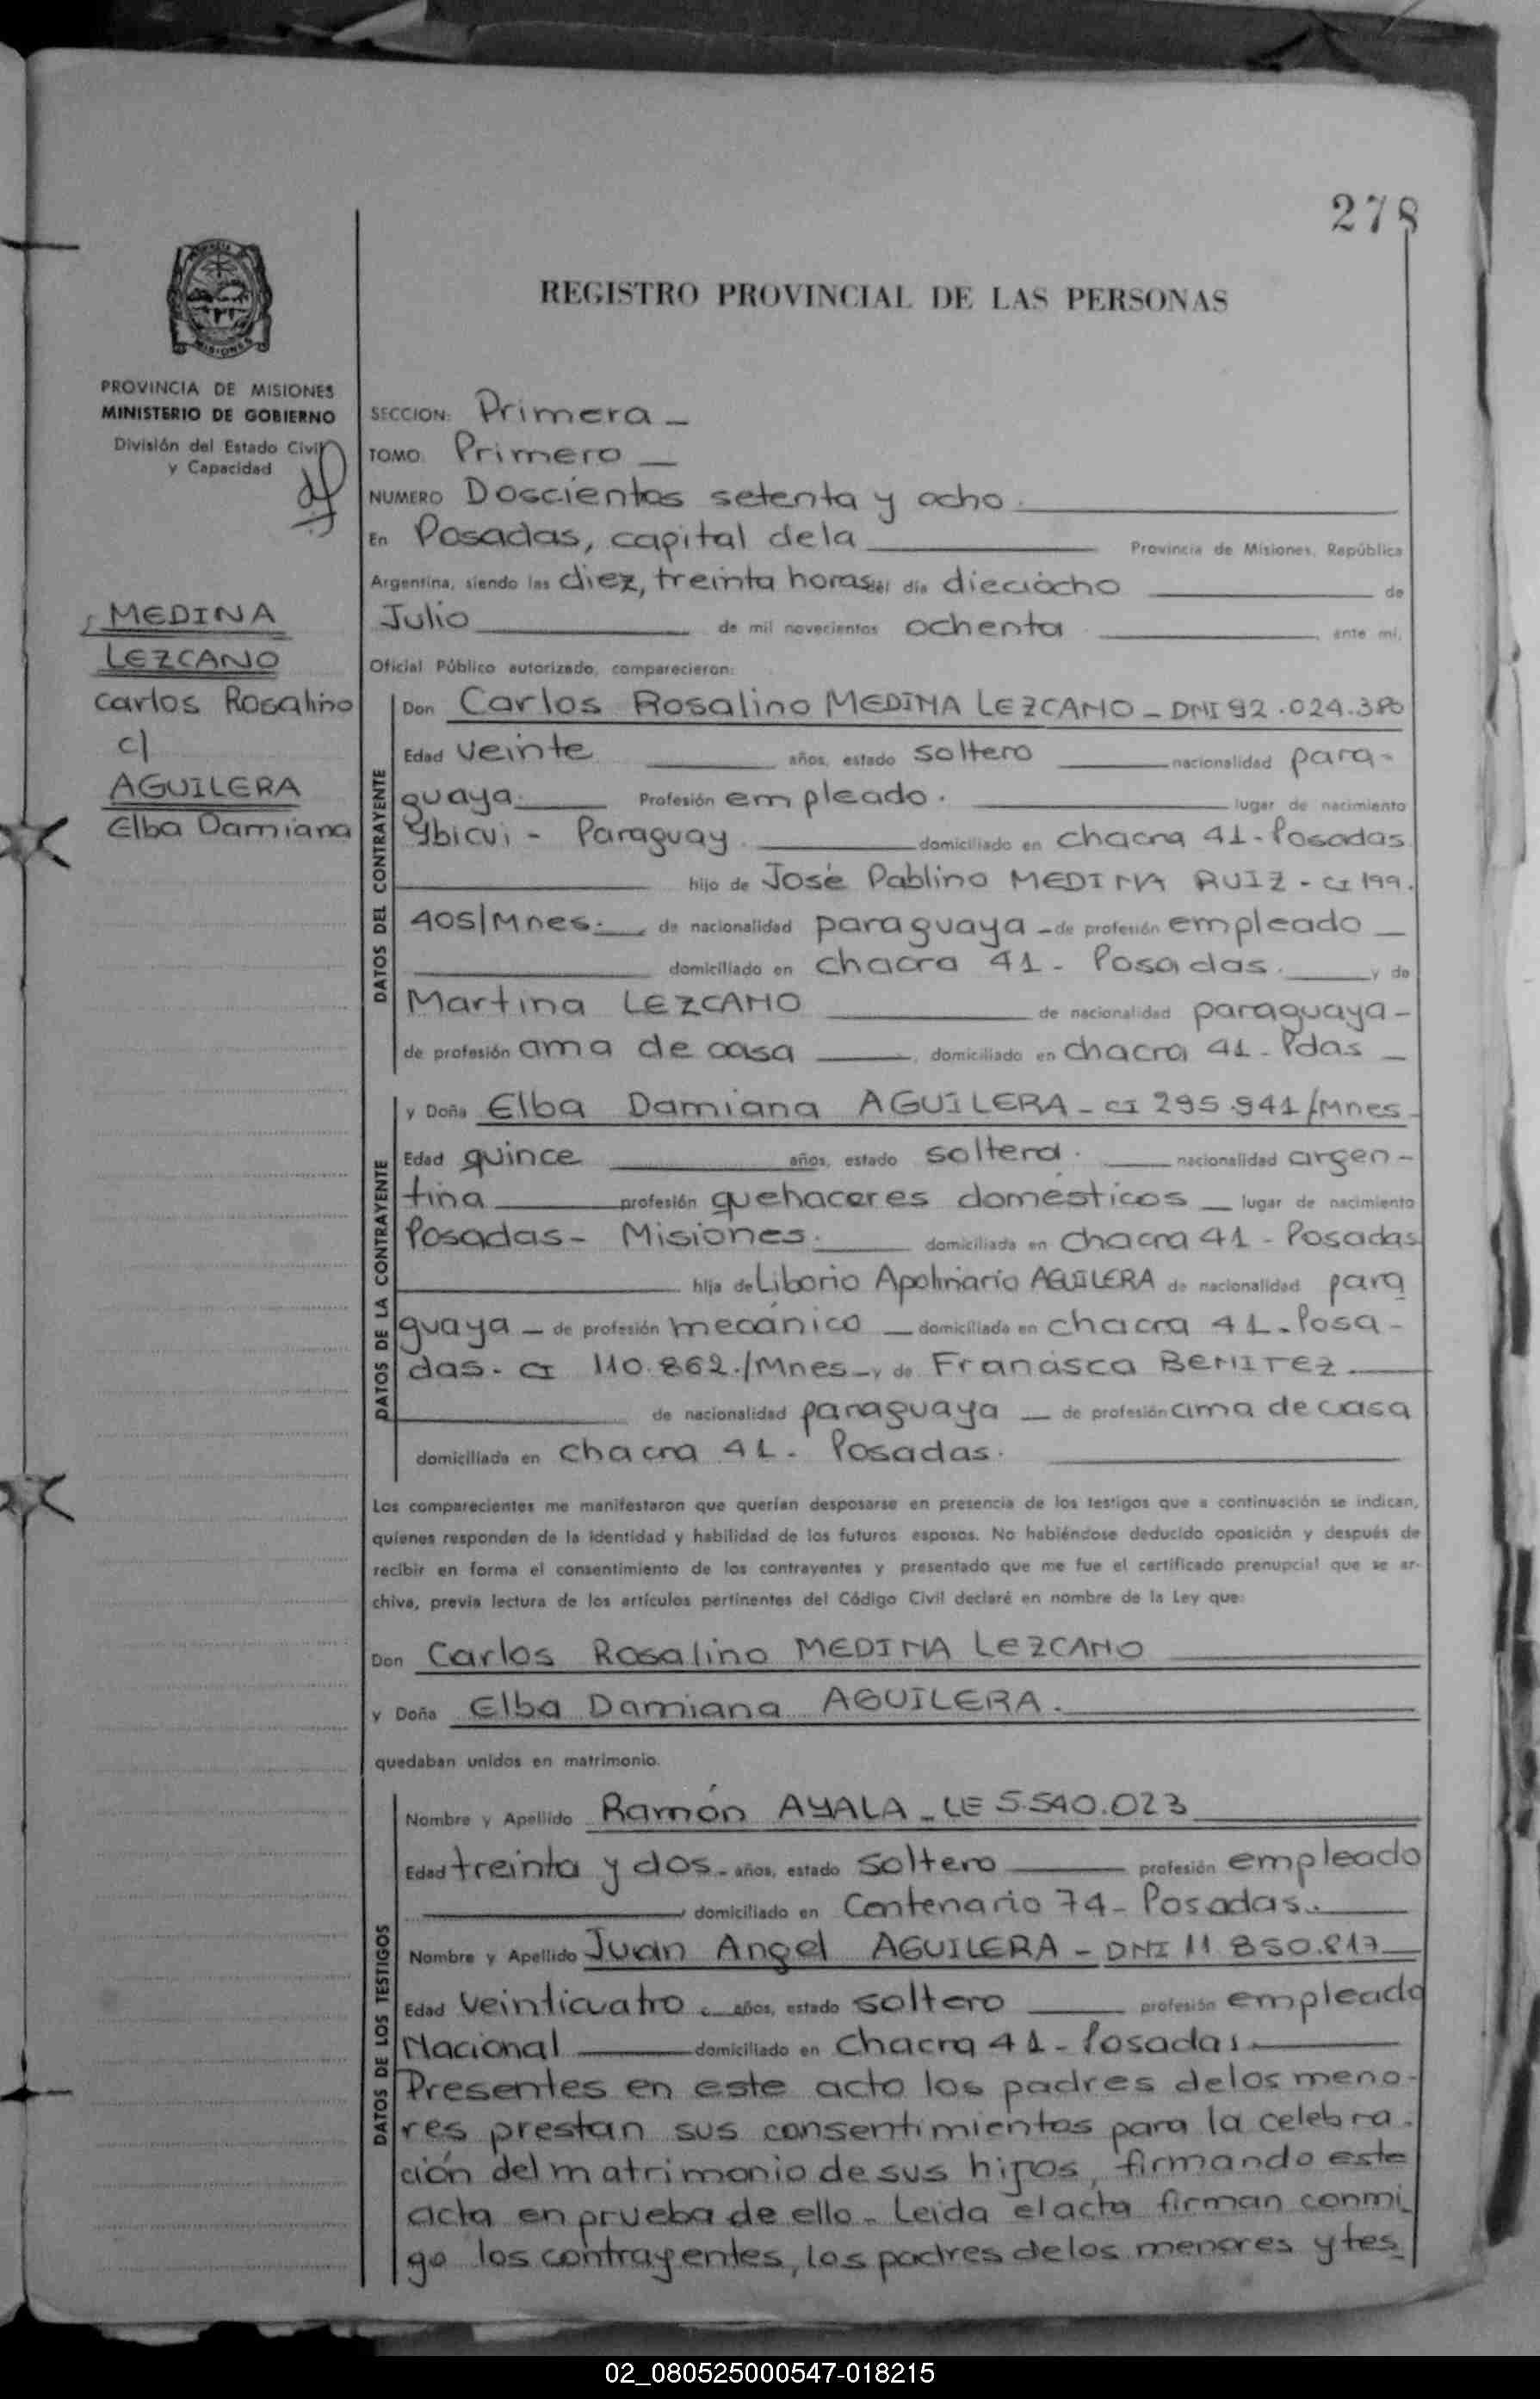 278
REGISTRO PROVINCIAL DE LAS PERSONAS
MISIONES
PROVINCIA DE MISIONES
MINISTERIO DE GOBIERNO
División del Estado Civil
y Capacidad
MEDINA
LEZCANO
Carlos Rosalino
c/
AGUILERA
Elba Damiana
SECCION: Primera -
TOMO Primero -
NUMERO Doscientos setenta y ocho.
En Posadas, capital de la Provincia de Misiones, República
Argentina, siendo las diez, treinta horas del día dieciocho de
Julio de mil novecientos ochenta ante mí,
Oficial Público autorizado, comparecieron:
DATOS DEL CONTRAYENTE
Don Carlos Rosalino MEDINA LEZCANO - DNI 92.024.380
Edad veinte años, estado soltero nacionalidad para-
guaya. Profesión empleado. lugar de nacimiento
Ybicui - Paraguay. domiciliado en chacra 41 - Posadas
hijo de José Pablino MEDINA RUIZ - CI 199.
405/Mnes. de nacionalidad paraguaya - de profesión empleado -
domiciliado en chacra 41 - Posadas. y de
Martina LEZCANO de nacionalidad paraguaya -
de profesión ama de casa, domiciliado en chacra 41 - Pdas -
DATOS DE LA CONTRAYENTE
y Doña Elba Damiana AGUILERA - CI 295.941/Mnes -
Edad quince años, estado soltera. nacionalidad argen-
tina profesión quehaceres domésticos - lugar de nacimiento
Posadas - Misiones. domiciliada en chacra 41 - Posadas
hija de Liborio Apolinario AGUILERA de nacionalidad para
guaya - de profesión mecánico - domiciliada en chacra 41 - Posa-
das. CI 110.862./Mnes - y de Francisca BENITEZ
de nacionalidad paraguaya - de profesión ama de casa
domiciliada en chacra 41 - Posadas.
Los comparecientes me manifestaron que querían desposarse en presencia de los testigos que a continuación se indican,
quienes responden de la identidad y habilidad de los futuros esposos. No habiéndose deducido oposición y después de
recibir en forma el consentimiento de los contrayentes y presentado que me fue el certificado prenupcial que se ar-
chiva, previa lectura de los artículos pertinentes del Código Civil declaré en nombre de la Ley que:
Don Carlos Rosalino MEDINA LEZCANO
y Doña Elba Damiana AGUILERA.
quedaban unidos en matrimonio.
DATOS DE LOS TESTIGOS
Nombre y Apellido Ramón AYALA - LE 5.540.023
Edad treinta y dos - años, estado soltero profesión empleado
domiciliado en Centenario 74 - Posadas.
Nombre y Apellido Juan Angel AGUILERA - DNI 11.850.817
Edad veinticuatro años, estado soltero profesión empleado
Nacional domiciliado en chacra 41 - Posadas
Presentes en este acto los padres de los meno-
res prestan sus consentimientos para la celebra-
ción del matrimonio de sus hijos, firmando este
acta en prueba de ello. Leida el acta firman conmi-
go los contrayentes, los padres de los menores y tes-
02_080525000547-018215